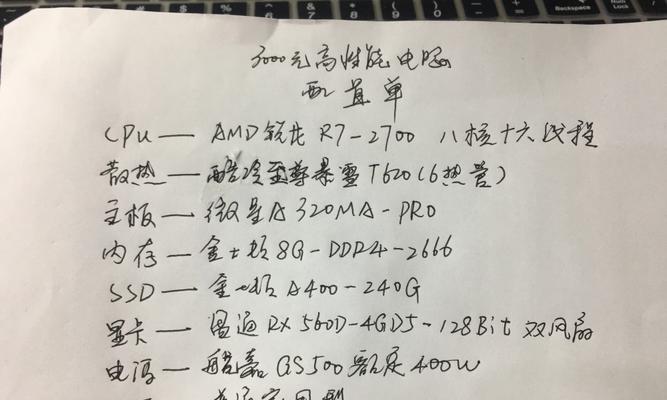 3000元高性能电脑
配置单
CPU — AMD锐龙 R7-2700 八核十六线程
散热 — 酷冷至尊暴雪T620(6热管)
主板 — 微星A320MA-PRO
内存 — 金士顿8G-DDR4-2666
SSD — 金士顿A400-240G
显卡 — 盈通RX 560D-4GD5-128Bit 双风扇
电源 — GS500额定400W